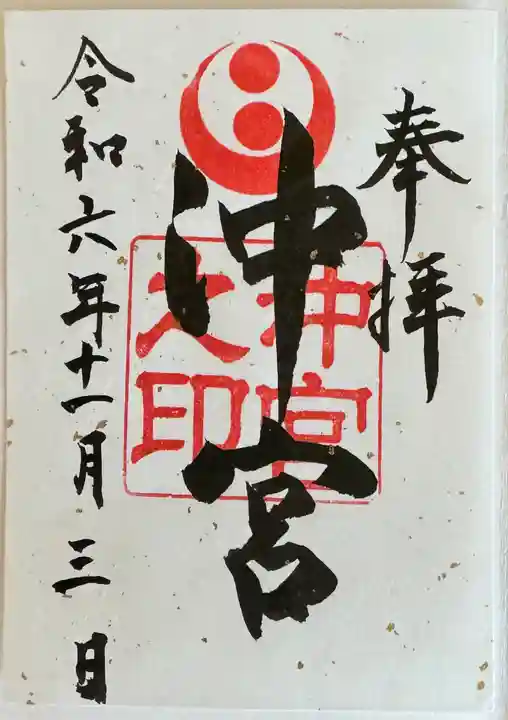 奉拝
沖宮
沖宮之印
令和六年十一月三日